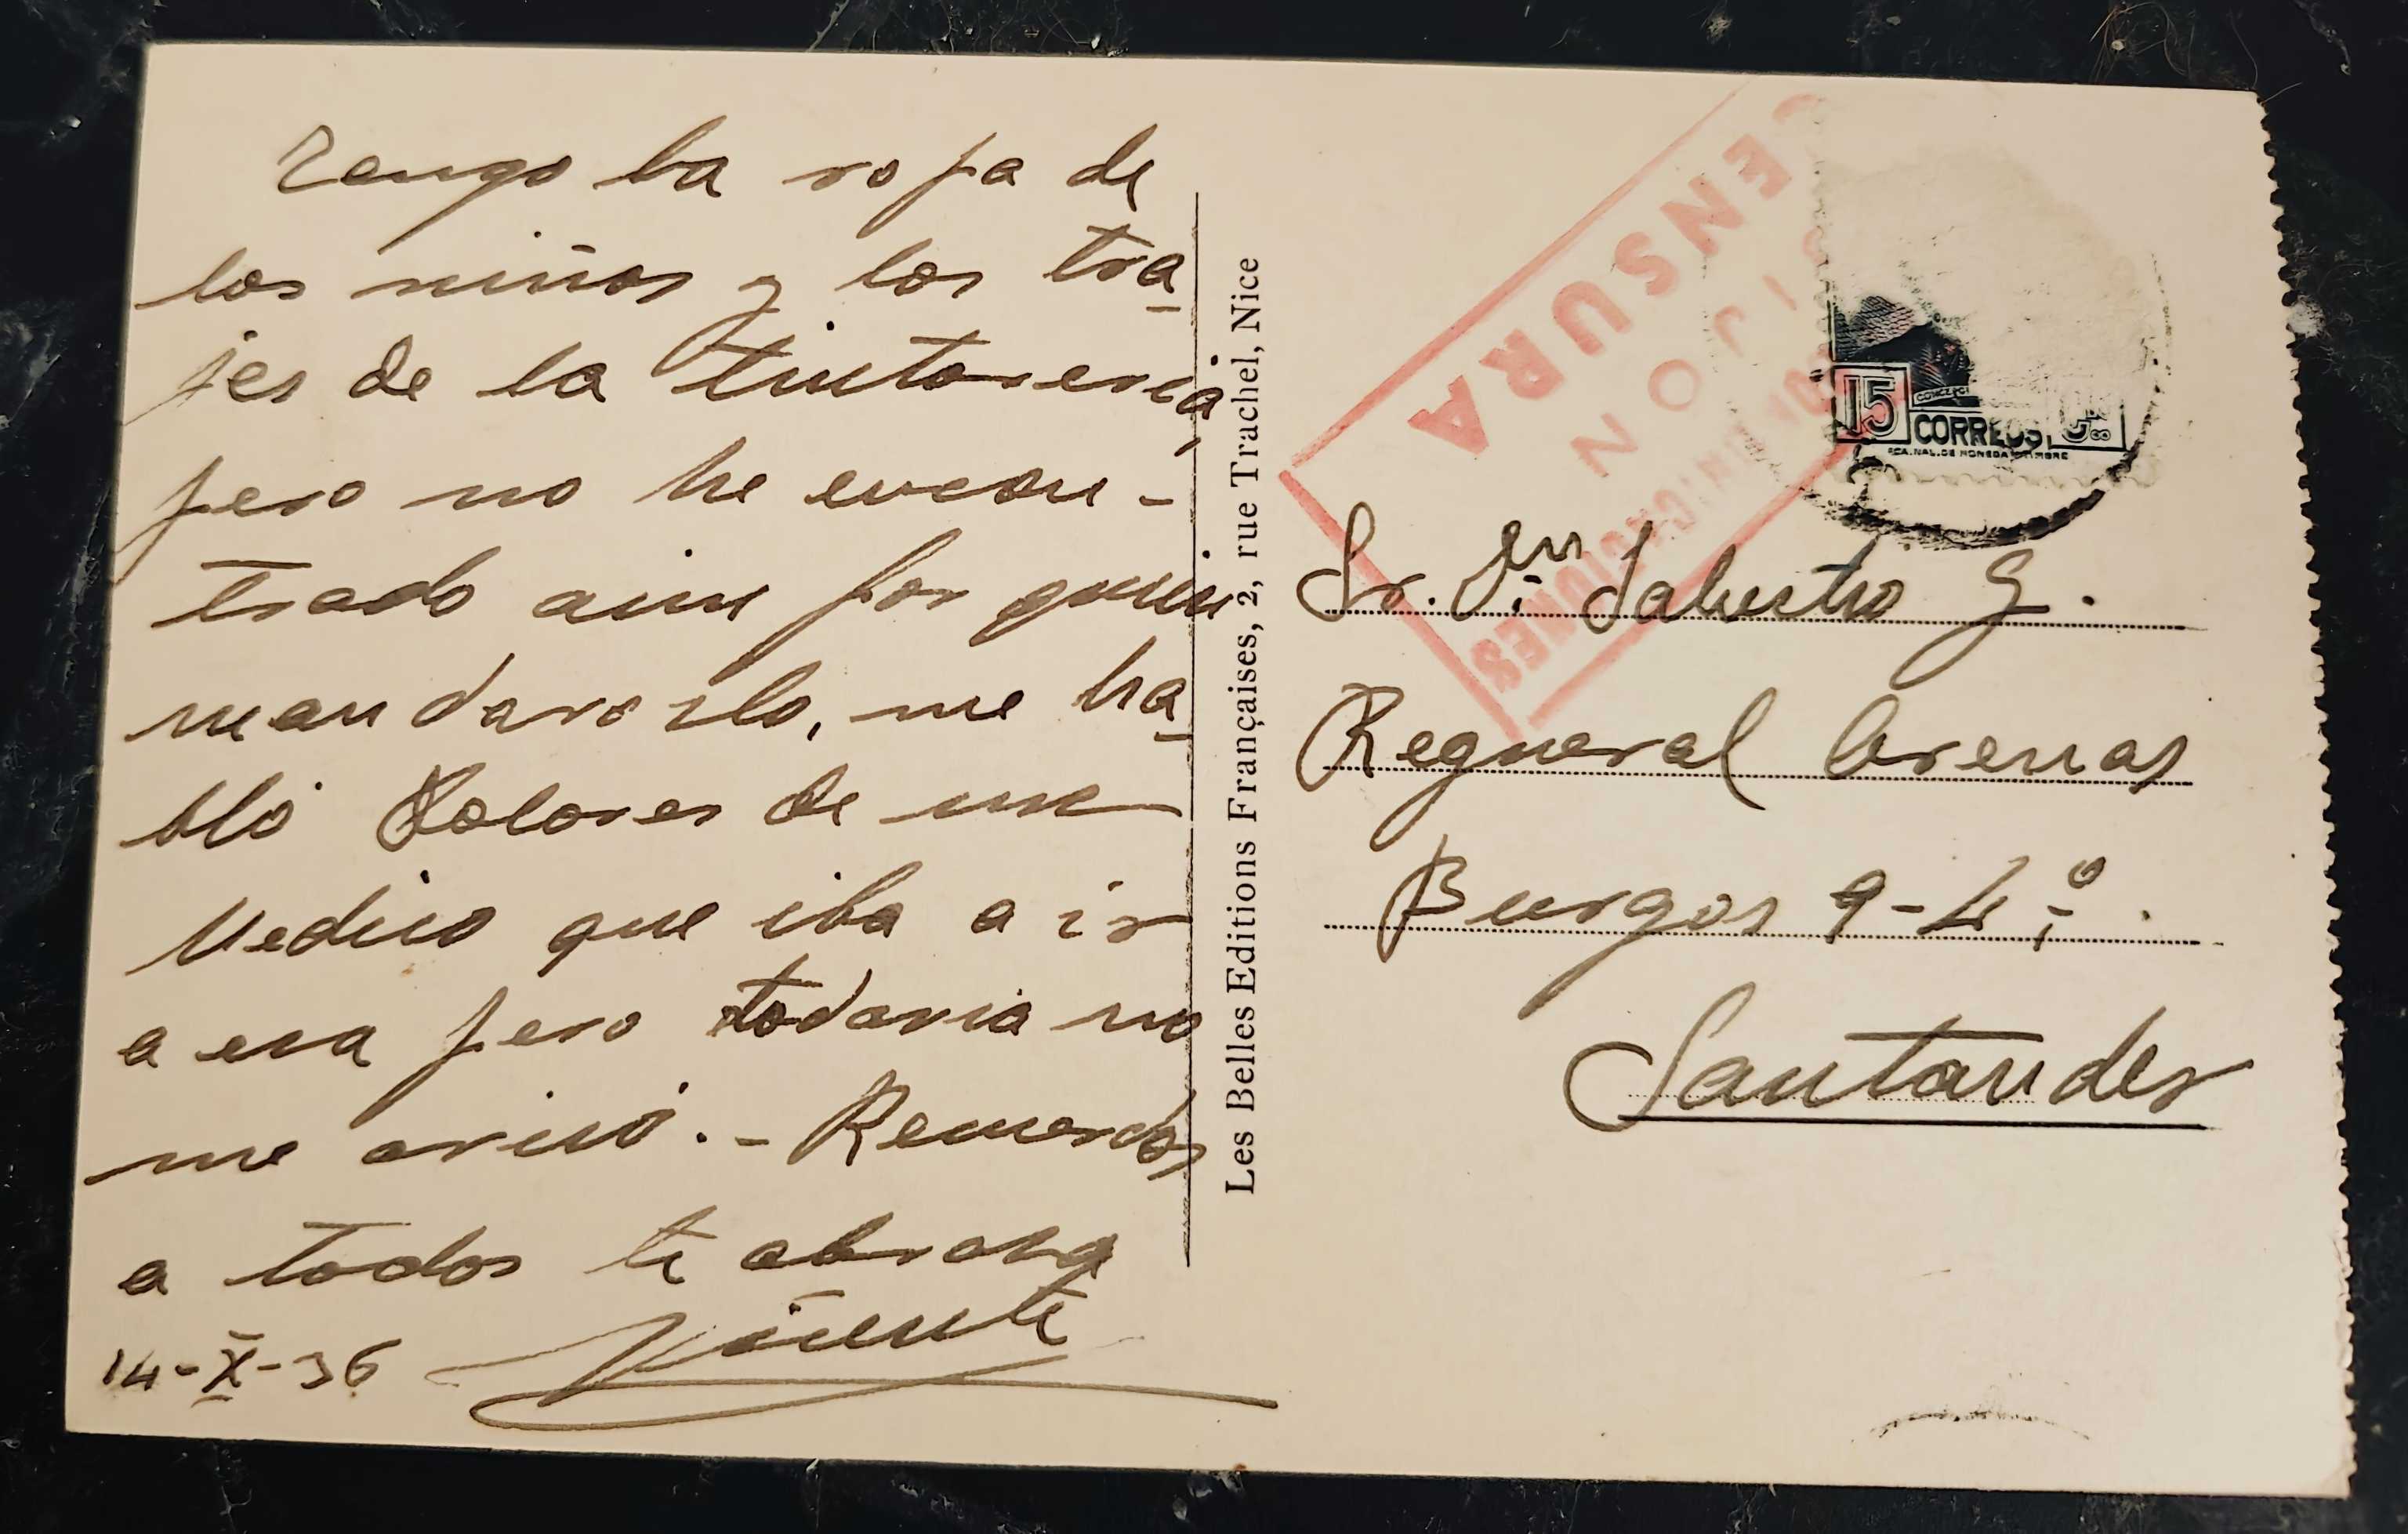 Tengo la ropa de
los niños y los tra-
jes de la tintoreria,
pero no he encon-
trado aun por quien
mandaroslo, me ha-
bló Dolores de un
Medico que iba a ir
a esa pero todavia no
me avisó.- Recuerdos
a todos te abraza
Vicente
14-X-36
Les Belles Editions Françaises, 2, rue Trachel, Nice
CENSURA
GIJON
COMUNICACIONES
15
CORREOS
CTS
FCA.NAL.DE MONEDA Y TIMBRE
Sr. Dn. Salustio G.
Regueral Arenas
Burgos 9-4º.
Santander